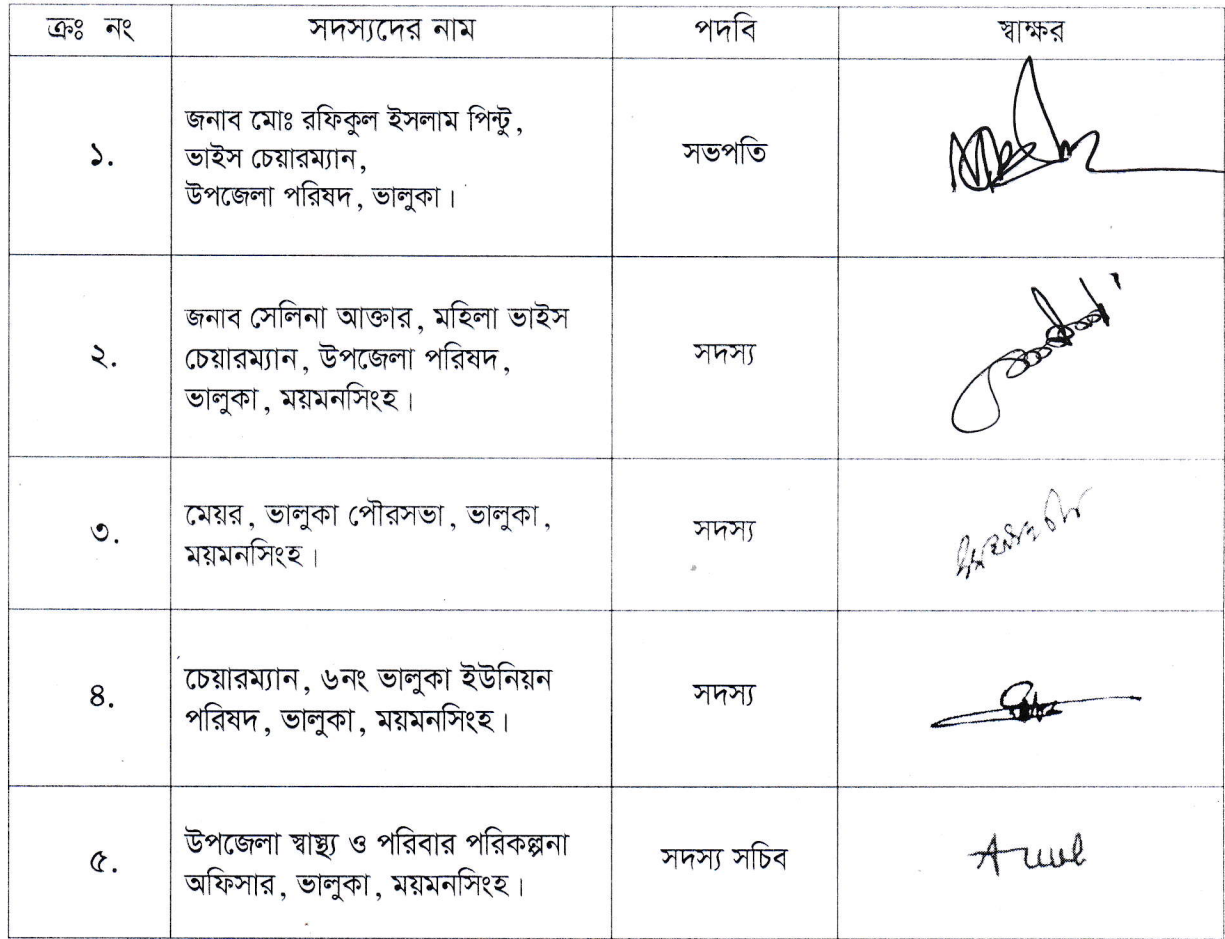 ক্রঃ নং সদস্যদের নাম পদবি স্বাক্ষর
১. জনাব মোঃ রফিকুল ইসলাম পিন্টু,
ভাইস চেয়ারম্যান,
উপজেলা পরিষদ, ভালুকা। সভপতি
২. জনাব সেলিনা আক্তার, মহিলা ভাইস
চেয়ারম্যান, উপজেলা পরিষদ,
ভালুকা, ময়মনসিংহ। সদস্য
৩. মেয়র, ভালুকা পৌরসভা, ভালুকা,
ময়মনসিংহ। সদস্য
৪. চেয়ারম্যান, ৬নং ভালুকা ইউনিয়ন
পরিষদ, ভালুকা, ময়মনসিংহ। সদস্য
৫. উপজেলা স্বাস্থ্য ও পরিবার পরিকল্পনা
অফিসার, ভালুকা, ময়মনসিংহ। সদস্য সচিব